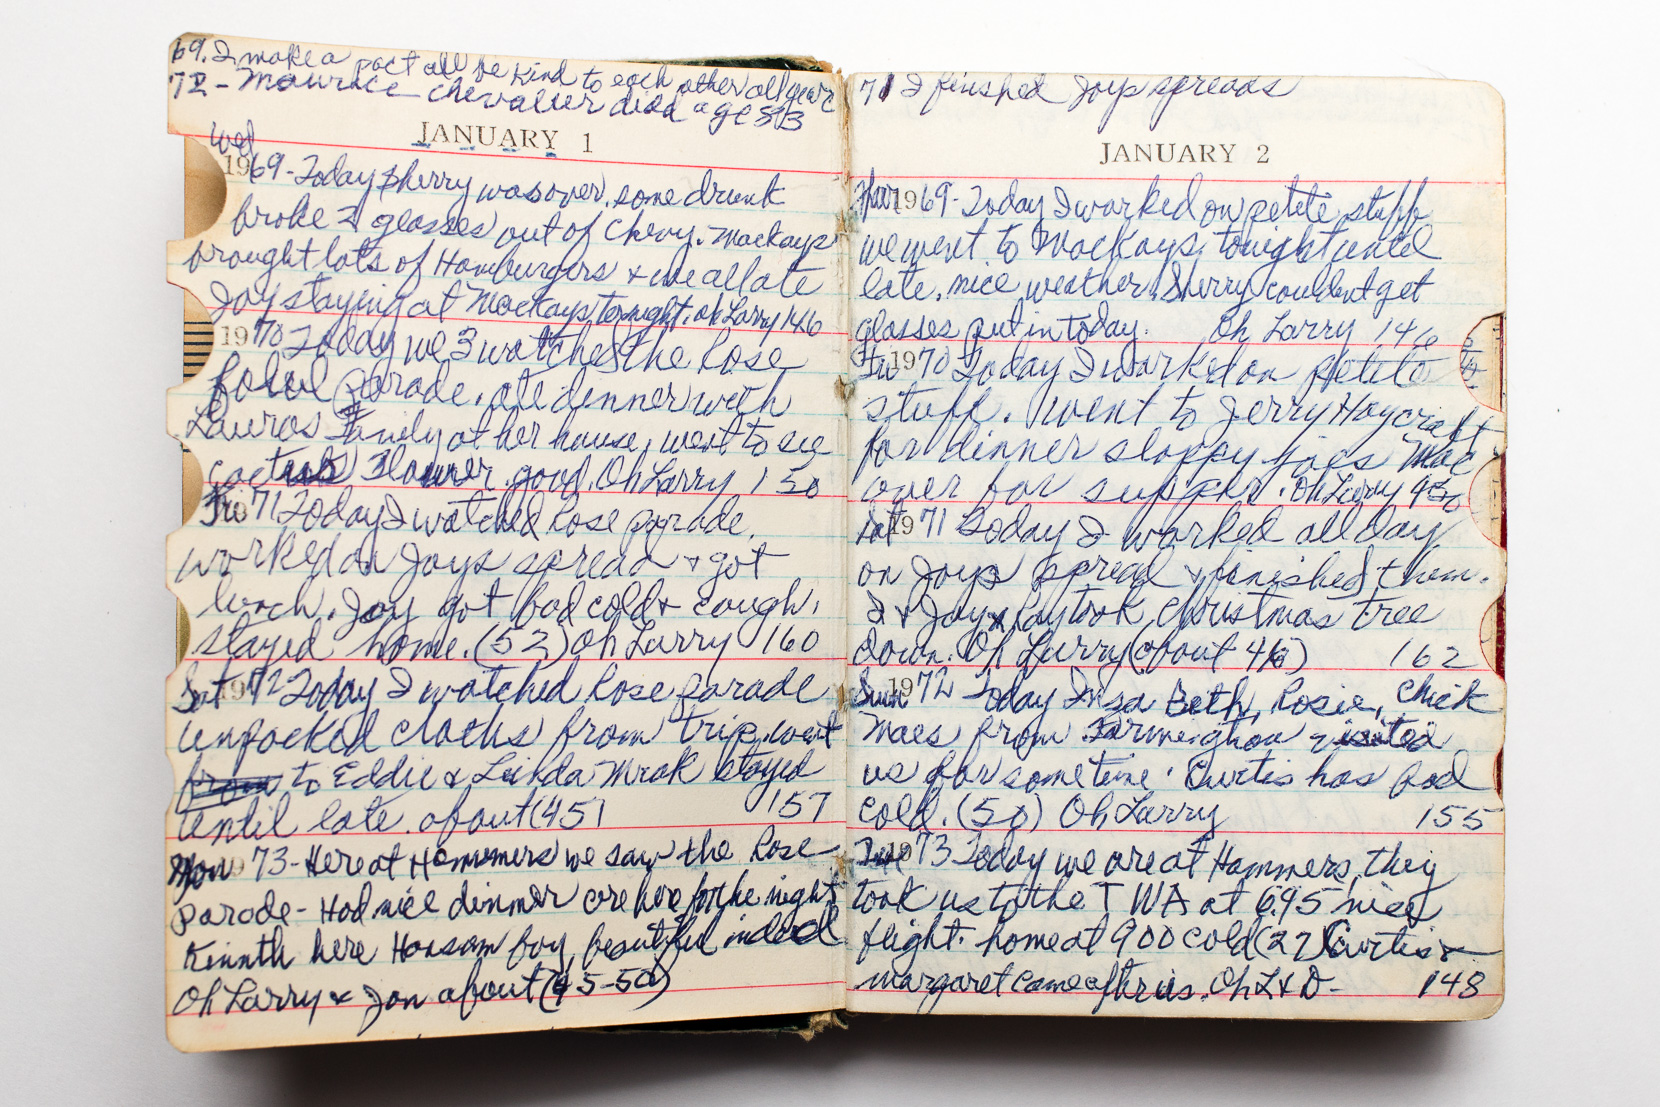 69. I make a pact all be kind to each other all year
72 - Maurice Chevalier died age 83
JANUARY 1
Wed
1969 - Today Sherry was over, some drunk
broke 2 glasses out of Chevy. Mackays
brought lots of Hamburgers & we all ate
Joy staying at Mackays tonight. Oh Larry 146
1970 Today we 3 watched the Rose
Bowl parade. ate dinner with
Lauras Family at her house, went to see
Cactus Flower. good. Oh Larry 150
Fri 71 Today I watched Rose parade.
worked on Joys spread & got
lunch. Joy got bad cold & cough.
stayed home. (52) Oh Larry 160
Sat 1972 Today I watched Rose parade
unpacked cloths from trip. went
from to Eddie & Linda Mrak stayed
until late. about (45) 157
Mon 73 - Here at Hammers we saw the Rose
parade - Had nice dinner are here for the night
Kinnth here Hansam boy, beautiful indeed
Oh Larry & Jan about (45-50)
71 I finished Joys spreads
JANUARY 2
Thur 1969 - Today I worked on petite stuff
we went to Mackays tonight until
late. nice weather. Sherry couldent get
glasses put in today. Oh Larry 146
Fri 1970 Today I worked on petite
stuff. went to Jerry Haycraft
for dinner sloppy joes Mac
over for supper. Oh Larry 150
Sat 1971 Today I worked all day
on Joys spread & finished them.
I & Joy & Ray took Christmas tree
down. Oh Larry (about 46) 162
Sun 1972 Today Inza Beth, Rosie, Chick
Maes from Farmington visited
us for sometime. Curtis has bad
cold. (50) Oh Larry 155
Tue 1973 Today we are at Hammers, they
took us to the TWA at 6:95 nice
flight. home at 900 cold (27) Curtis &
margaret came after us. Oh L & D - 148